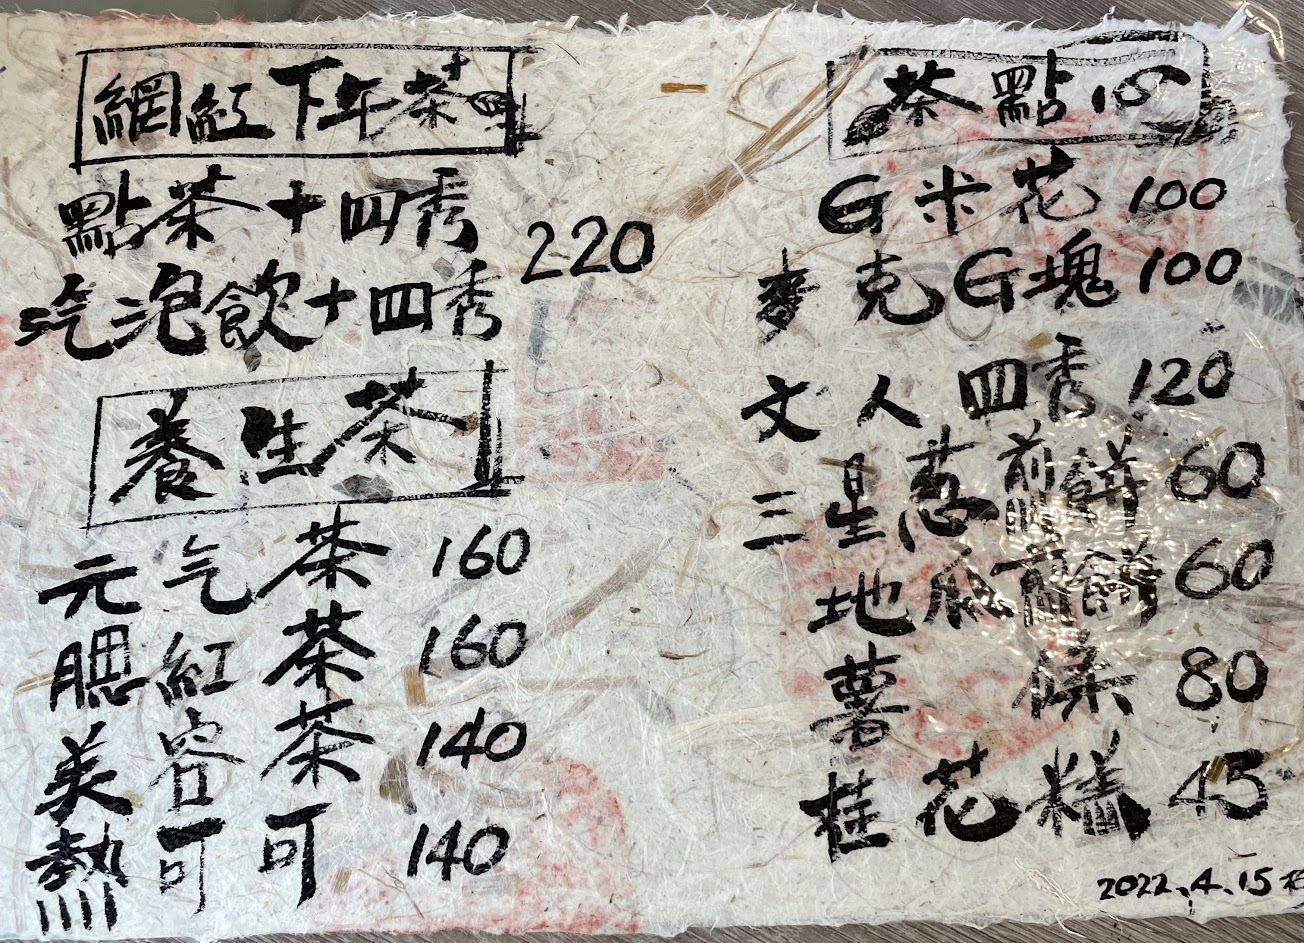 網紅下午茶
點茶+四秀
220
汽泡飲+四秀
養生茶
元气茶 160
腮紅茶 160
美容茶 140
熱可可 140
茶點心
G米花 100
麥克G塊 100
文人四秀 120
三星葱煎餅 60
地瓜煎餅 60
薯條 80
桂花糕 45
2022.4.15